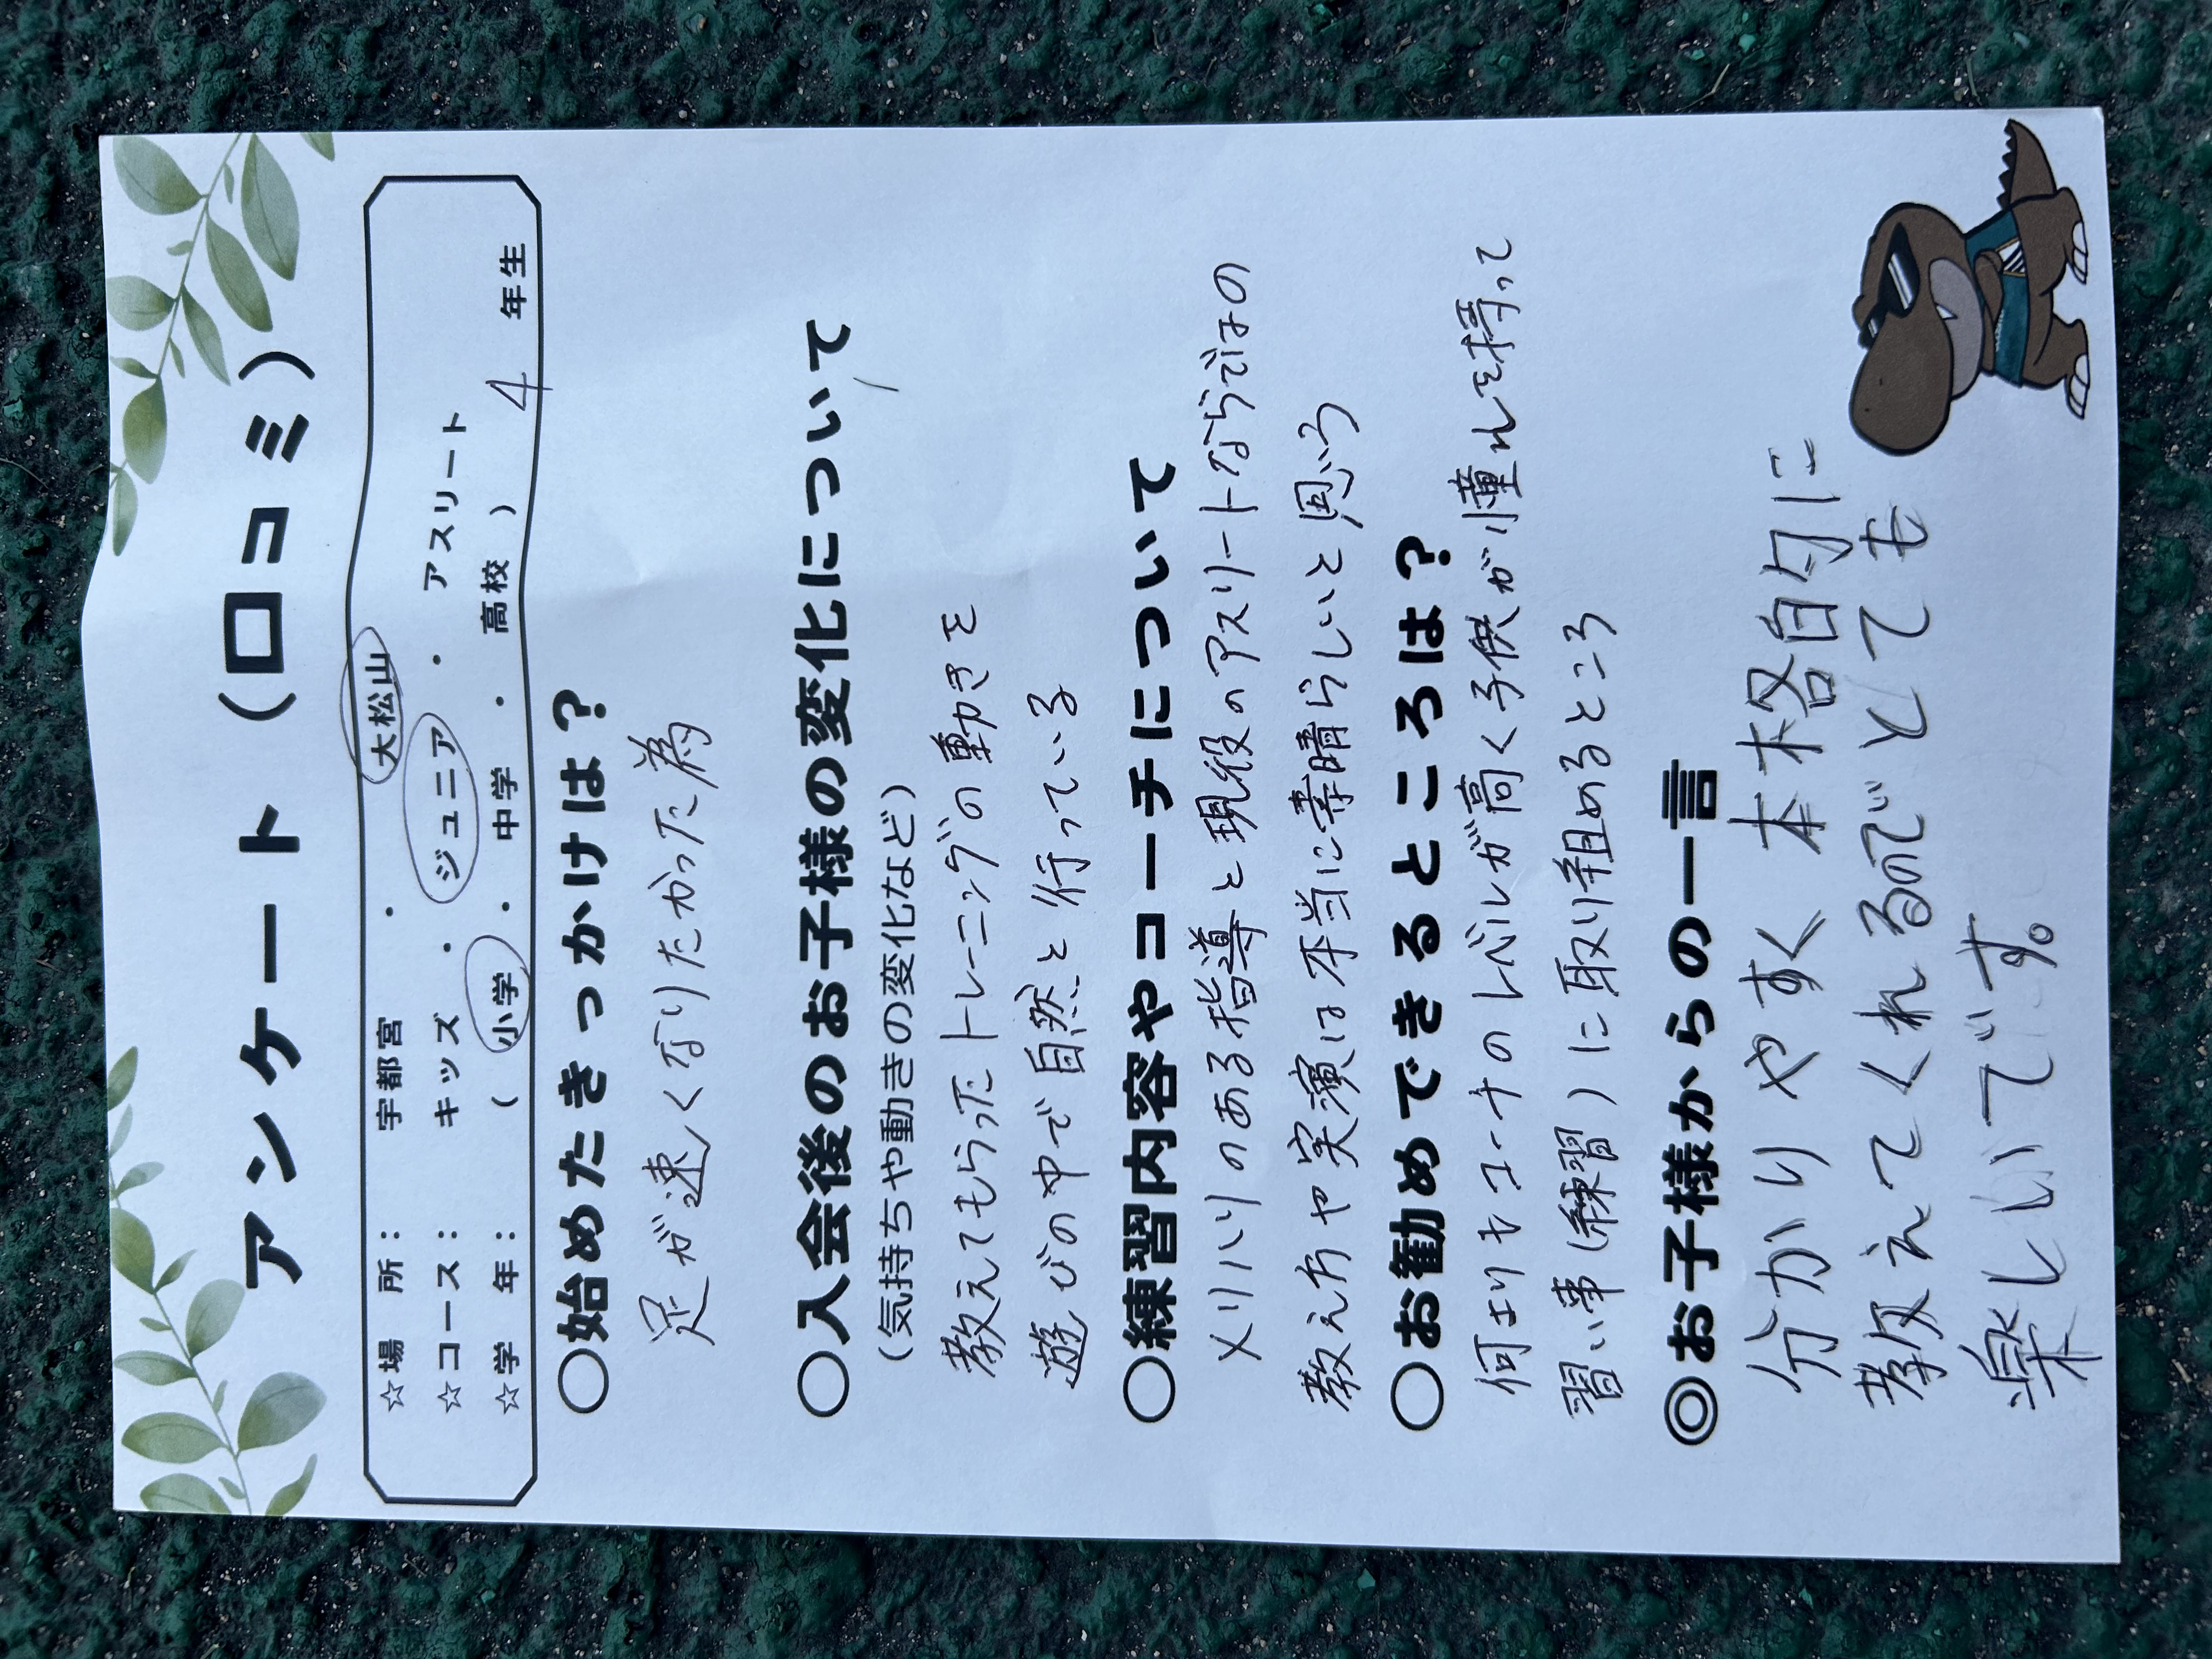 アンケート（口コミ）
☆場　所：　宇都宮　・　大松山
☆コース：　キッズ　・　ジュニア　・　アスリート
☆学　年：　（　小学　・　中学　・　高校　）　4　年生
○始めたきっかけは？
足が速くなりたかった為
○入会後のお子様の変化について
（気持ちや動きの変化など）
教えてもらったトレーニングの動きを
遊びの中で自然と行っている
○練習内容やコーチについて
メリハリのある指導と現役のアスリートならではの
教え方や実演は本当に素晴らしいと思いう
○お勧めできるところは？
何よりもコーチのレベルが高く子供が憧れを持って
習い事（練習）に取り組めるところ
◎お子様からの一言
分かりやすく本格的に
教えてくれるのでとても
楽しいです。